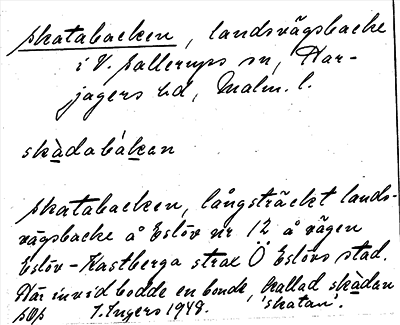 skatabacken, landsvägsbacke
i V. Sallerups sn, Har-
jagers hd, Malm. l.
skàdabákan
skatabacken, långsträckt lands-
vägsbacke å Eslöv nr 12 å vägen
Eslöv-Kastberga strax Ö Eslövs stad.
Här invid bodde en bonde, kallad skàdan
I. Ingers 1948. 'skatan'.